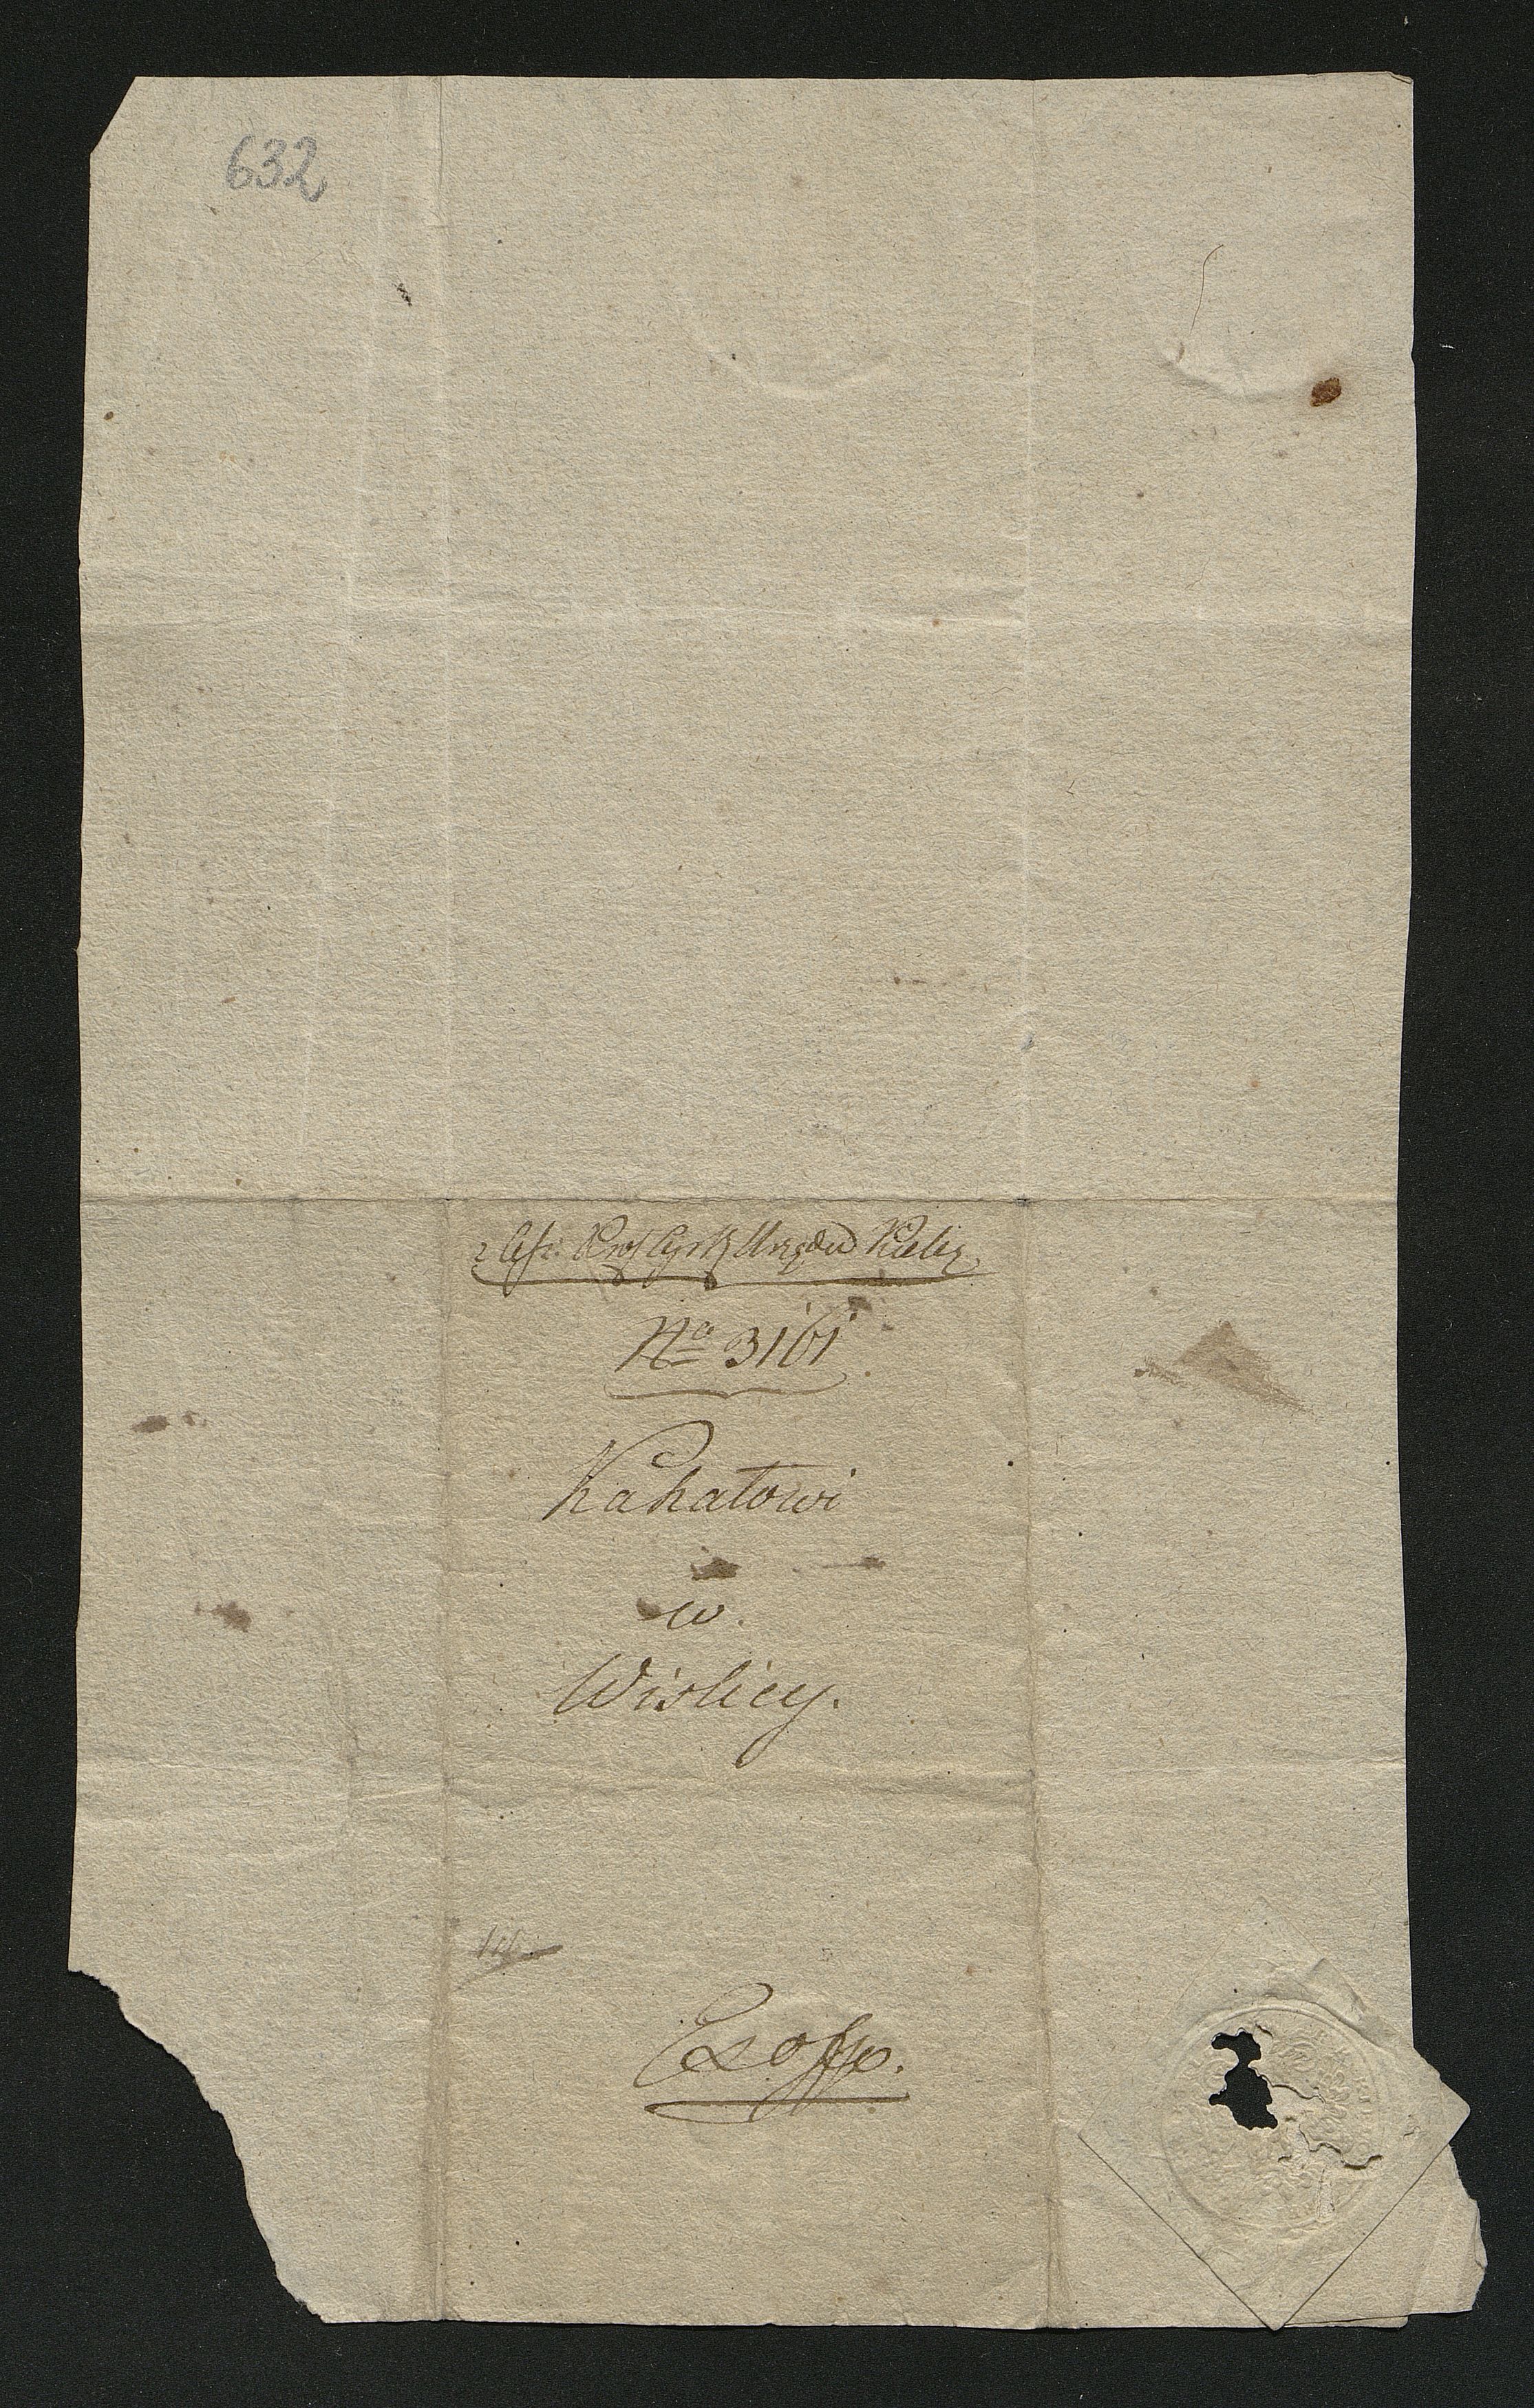 632
z Ces: Krol Cyrk Urzędu Kielc:
No 3161.
Kahałowi
w.
Wislicy.
Exoffo.